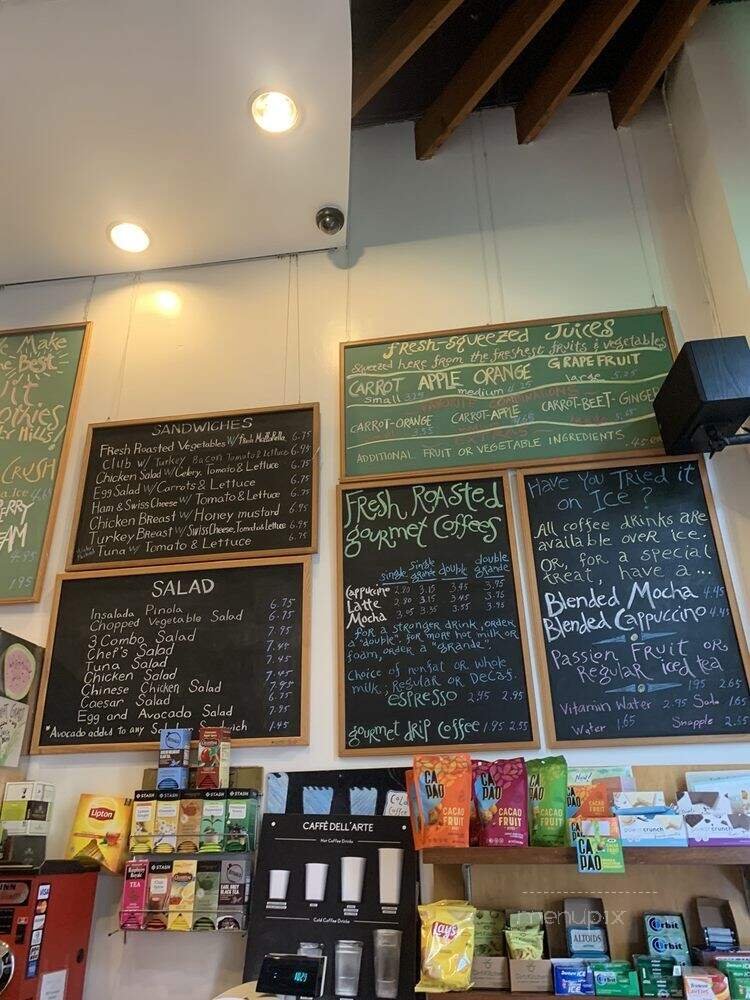 Make
the Best
it
Hills!
CRUSH
4.95
1.95
SANDWICHES
Fresh Roasted Vegetables w/ Fresh Mozzarella 6.75
Club w/ Turkey Bacon Tomato & Lettuce 6.95
Chicken Salad w/ Celery, Tomato & Lettuce 6.75
Egg Salad w/ Carrots & Lettuce 6.75
Ham & Swiss Cheese w/ Tomato & Lettuce 6.75
Chicken Breast w/ Honey mustard 6.95
Turkey Breast w/ Swiss Cheese, Tomato & Lettuce 6.95
Tuna w/ Tomato & Lettuce 6.75
SALAD
Insalada Pinola 6.75
Chopped Vegetable Salad 6.75
3 Combo Salad 7.95
Chef's Salad 7.45
Tuna Salad 7.45
Chicken Salad 7.45
Chinese Chicken Salad
Caesar Salad 6.75
Egg and Avocado Salad 7.95
*Avocado added to any Sandwich 1.45
Fresh-Squeezed Juices
Squeezed here from the freshest fruits & vegetables
CARROT APPLE ORANGE GRAPEFRUIT
small 3.25 medium 4.25 large 5.25
CARROT-ORANGE CARROT-APPLE CARROT-BEET-GINGER
3.55
ADDITIONAL FRUIT OR VEGETABLE INGREDIENTS
Fresh Roasted
gourmet Coffees
single single grande double double grande
Cappucino 2.80 3.15 3.45 3.95
Latte 2.80 3.15 3.45 3.75
Mocha 3.05 3.35 3.55 3.95
for a stronger drink, order
a "double". for more hot milk or
foam, order a "grande".
Choice of nonfat or whole
milk, Regular or Decaf.
espresso 2.45 2.95
gourmet drip coffee 1.95 2.55
Have You Tried it
on Ice?
All coffee drinks are
available over ice.
OR, for a special
treat, have a...
Blended Mocha 4.45
Blended Cappuccino 4.45
Passion Fruit or
Regular iced tea
1.95 2.65
Vitamin Water 2.95 Soda 1.65
Water 1.65 Snapple 2.55
Lipton
STASH
STASH
TEA
CAFFÈ DELL'ARTE
Hot Coffee Drinks
Cold Coffee Drinks
CAPAO
CACAO FRUIT
CAPAO
CACAO FRUIT
CACAO FRUIT
CAPAO
powercrunch
Lay's
ALTOIDS
Orbit
Orbit
menupix